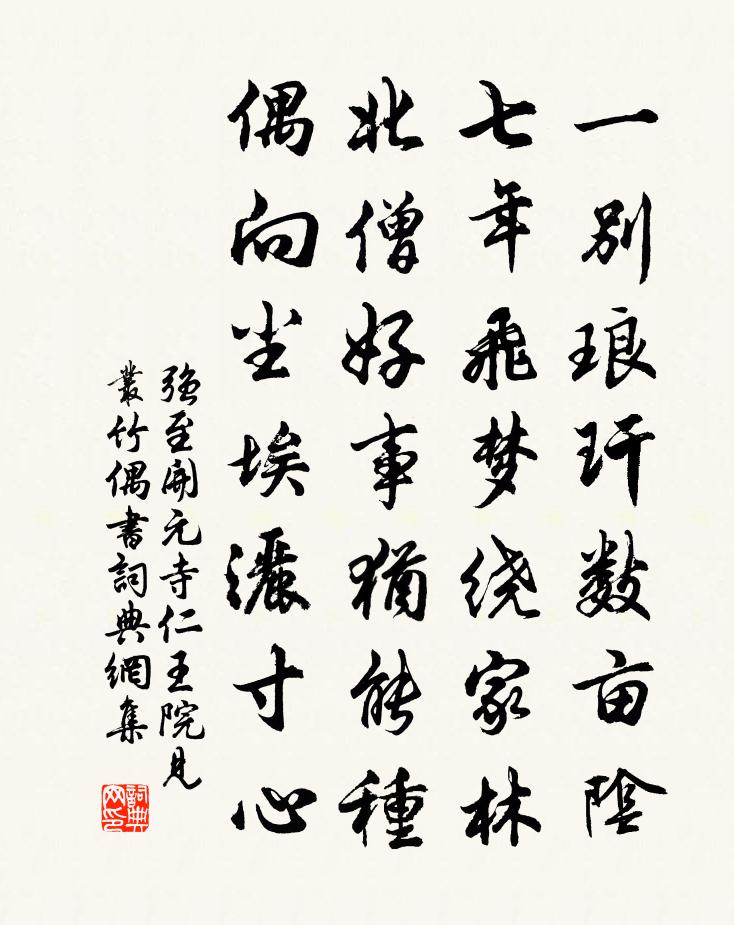 一别琅玕数亩陰
七年飛梦绕家林
北僧好事猶能種
偶向尘埃灑寸心
强至開元寺仁王院見
叢竹偶書詞典網集
詞典
网印